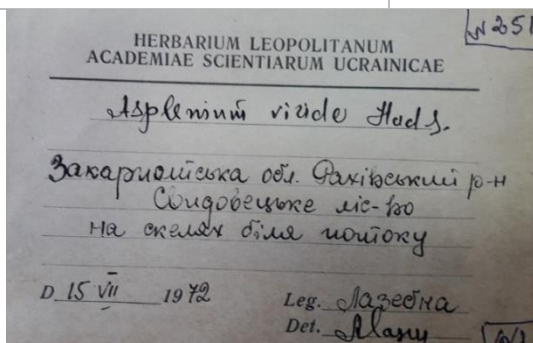 N 251
HERBARIUM LEOPOLITANUM
ACADEMIAE SCIENTIARUM UCRAINICAE
Asplenium viride Huds.
Закарпатська обл. Рахівський р-н
Свидовецьке ліс-во
на скелях біля потоку
D 15 VII 1972
Leg. Лазебна
Det.